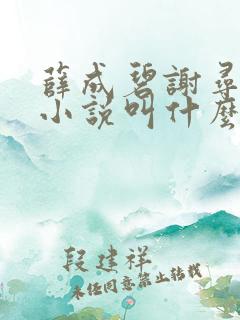 薛成碧謝尋
小說叫什麼
段建祥
未經同意禁止轉載